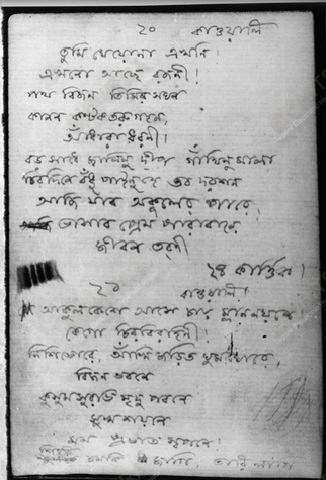 ২০ কাওয়ালি
তুমি যেয়োনা এখনি!
এখনো আছে রজনী!
পথ বিজন তিমির সঘন
কানন কণ্টকতরুগহন,
আঁধারা ধরণী!
বড় সাধে জ্বালিনু দীপ গাঁথিনু মালা
চিরদিনে বঁধু পাইনু হে তব দরশন
আজি যাব অকূলের পারে,
তোমার প্রেম পারাবারে
জীবন তরণী
২৪ কার্ত্তিক।
২১
কাওয়ালী।
আকুলকেশে আসে চায় ম্লাননয়নে
কেগো চিরবিরহিনী!
নিশিভোরে, আঁখি জড়িত ঘুমঘোরে,
বিজন ভবনে
কুসুমসুরভি মৃদু পবনে
সুখ শয়নে
মম প্রভাত স্বপনে!